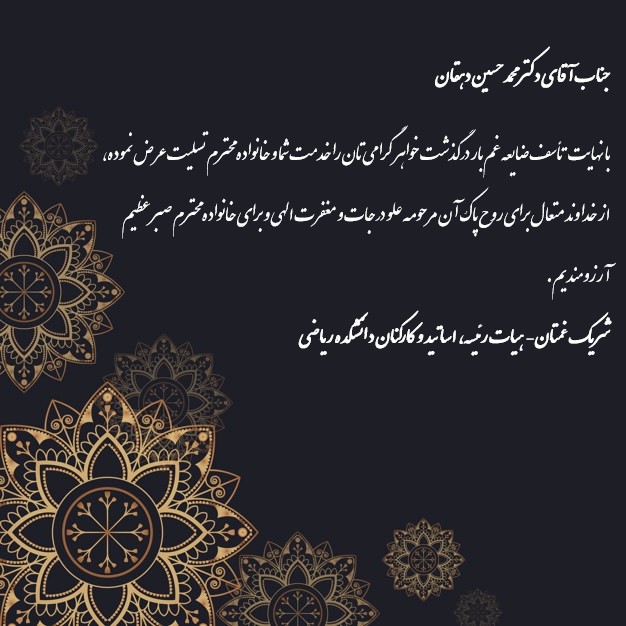 جناب آقای دکتر محمد حسین دهقان
با نهایت تأسف ضایعه غم بار درگذشت خواهر گرامی تان را خدمت شما و خانواده محترم تسلیت عرض نموده،
از خداوند متعال برای روح پاک آن مرحومه علو درجات و مغفرت الهی و برای خانواده محترم صبر عظیم
آرزومندیم.
شریک غمتان- هیات رئیسه، اساتید و کارکنان دانشکده ریاضی